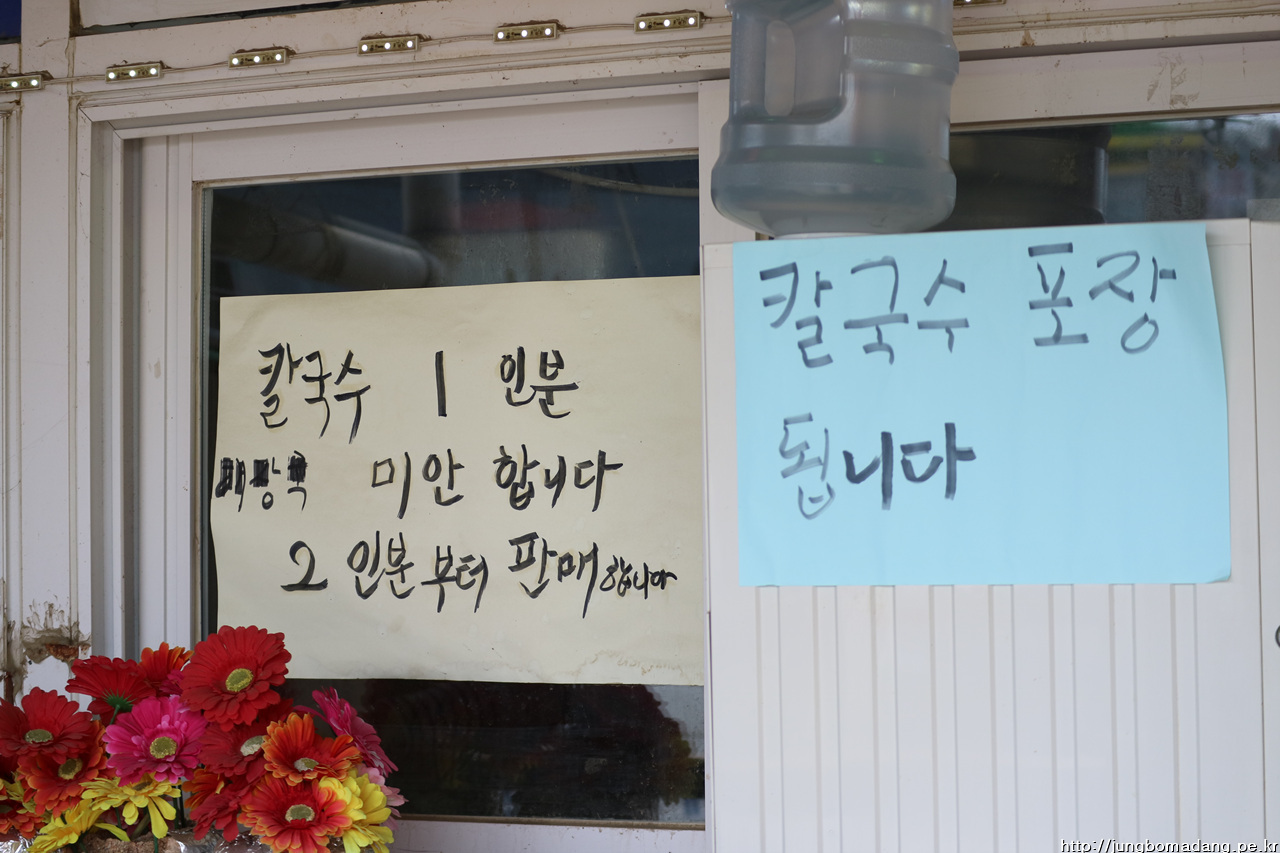 칼국수 1 인분
미안 합니다
2 인분 부터 판매 합니다
칼국수 포장
됩니다
http://jungbomadang.pe.kr